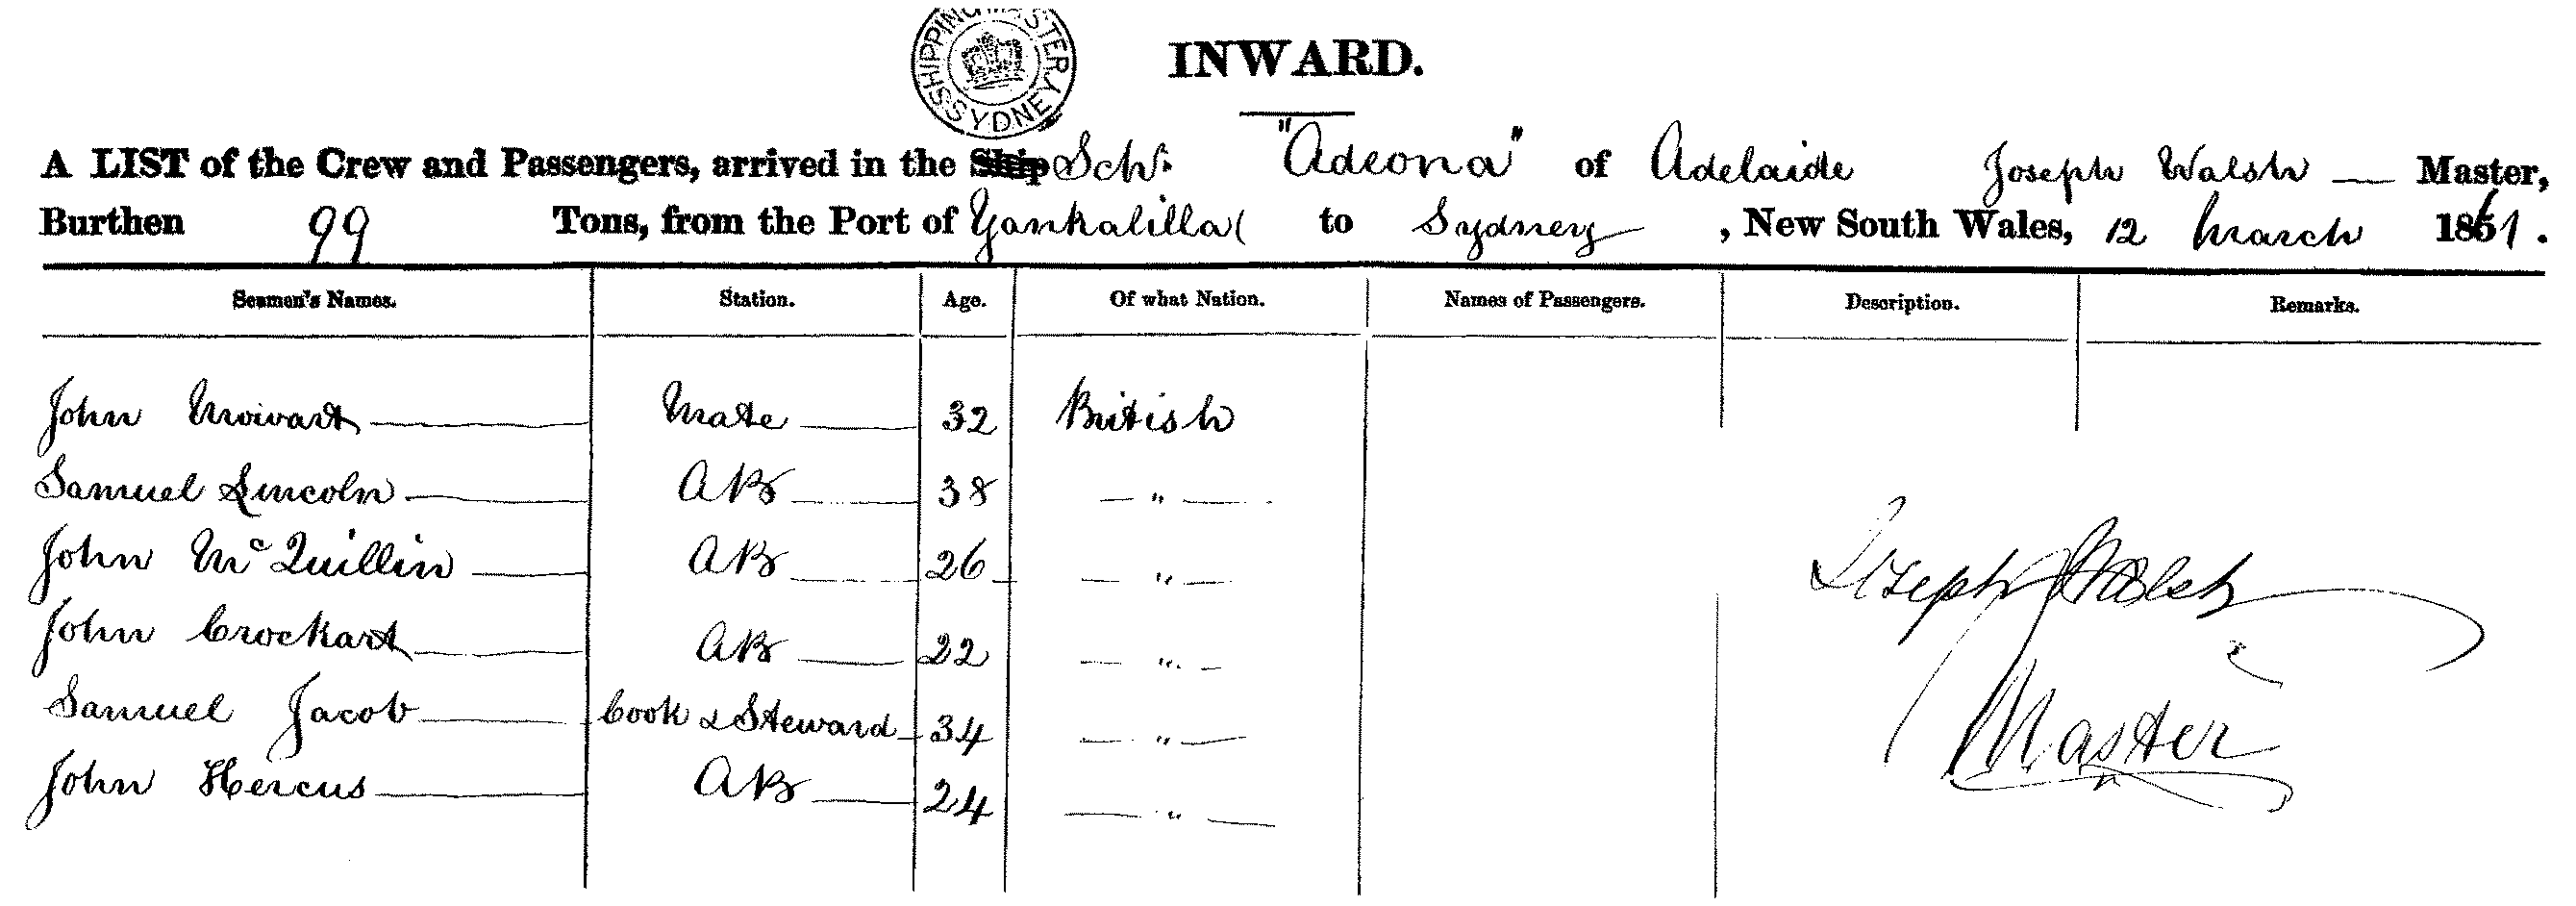 SHIPPING MASTER SYDNEY
INWARD.
A LIST of the Crew and Passengers, arrived in the Ship Schr. "Adeona" of Adelaide Joseph Walsh — Master,
Burthen 99 Tons, from the Port of Yankalilla to Sydney, New South Wales, 12 March 1861.
Seamen's Names. Station. Age. Of what Nation. Names of Passengers. Description. Remarks.
John Mowart Mate 32 British
Samuel Lincoln AB 38 — " —
John McQuillin AB 26 — " —
John Crockart AB 22 — " —
Samuel Jacob Cook & Steward 34 — " —
John Hercus AB 24 — " —
Joseph Walsh
Master